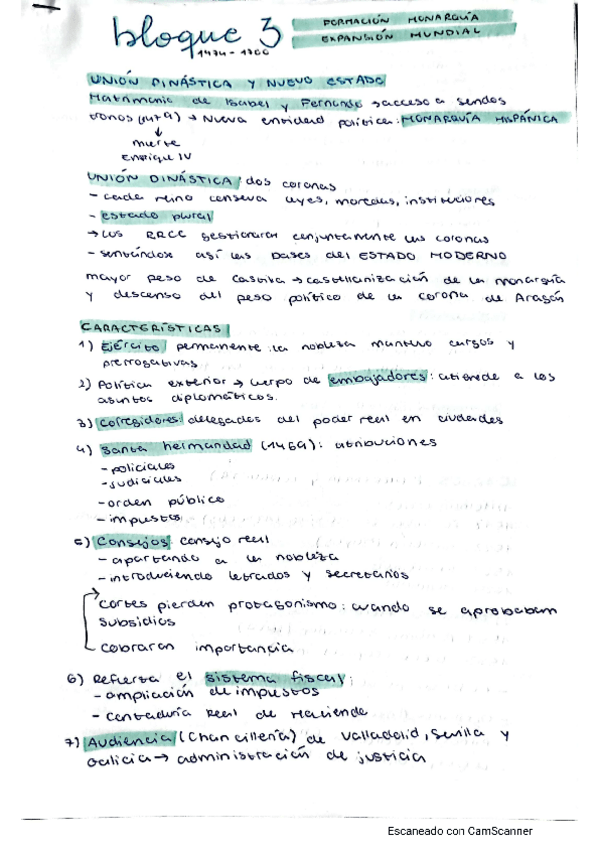 bloque 3
1474-1700
FORMACIÓN MONARQUÍA
EXPANSIÓN MUNDIAL
UNIÓN DINÁSTICA Y NUEVO ESTADO
Matrimonio de Isabel y Fernando → acceso a sendos
tronos (1479) → Nueva entidad política: MONARQUÍA HISPÁNICA
↓
muerte
Enrique IV
UNIÓN DINÁSTICA / dos coronas
- cada reino conserva leyes, monedas, instituciones
- estado plural
→ LOS RRCC gestionaron conjuntamente las coronas
- sentándose así las bases del ESTADO MODERNO
mayor peso de Castilla → castellanización de la monarquía
y descenso del peso político de la corona de Aragón
CARACTERÍSTICAS
1) Ejército permanente: la nobleza mantuvo cargos y
prerrogativas
2) Política exterior → cuerpo de embajadores: atiende a los
asuntos diplomáticos.
3) Corregidores: delegados del poder real en ciudades
4) Santa hermandad (1469): atribuciones
- policiales
- judiciales
- orden público
- impuestos
5) Consejos: consejo real
- apartando a la nobleza
- introduciendo letrados y secretarios
cortes pierden protagonismo: cuando se aprobaban
subsidios
cobraran importancia
6) Refuerza el sistema fiscal:
- ampliación de impuestos
- Contaduría Real de Hacienda
7) Audiencia (Chancillería) de Valladolid, Sevilla y
Galicia → administración de justicia
Escaneado con CamScanner